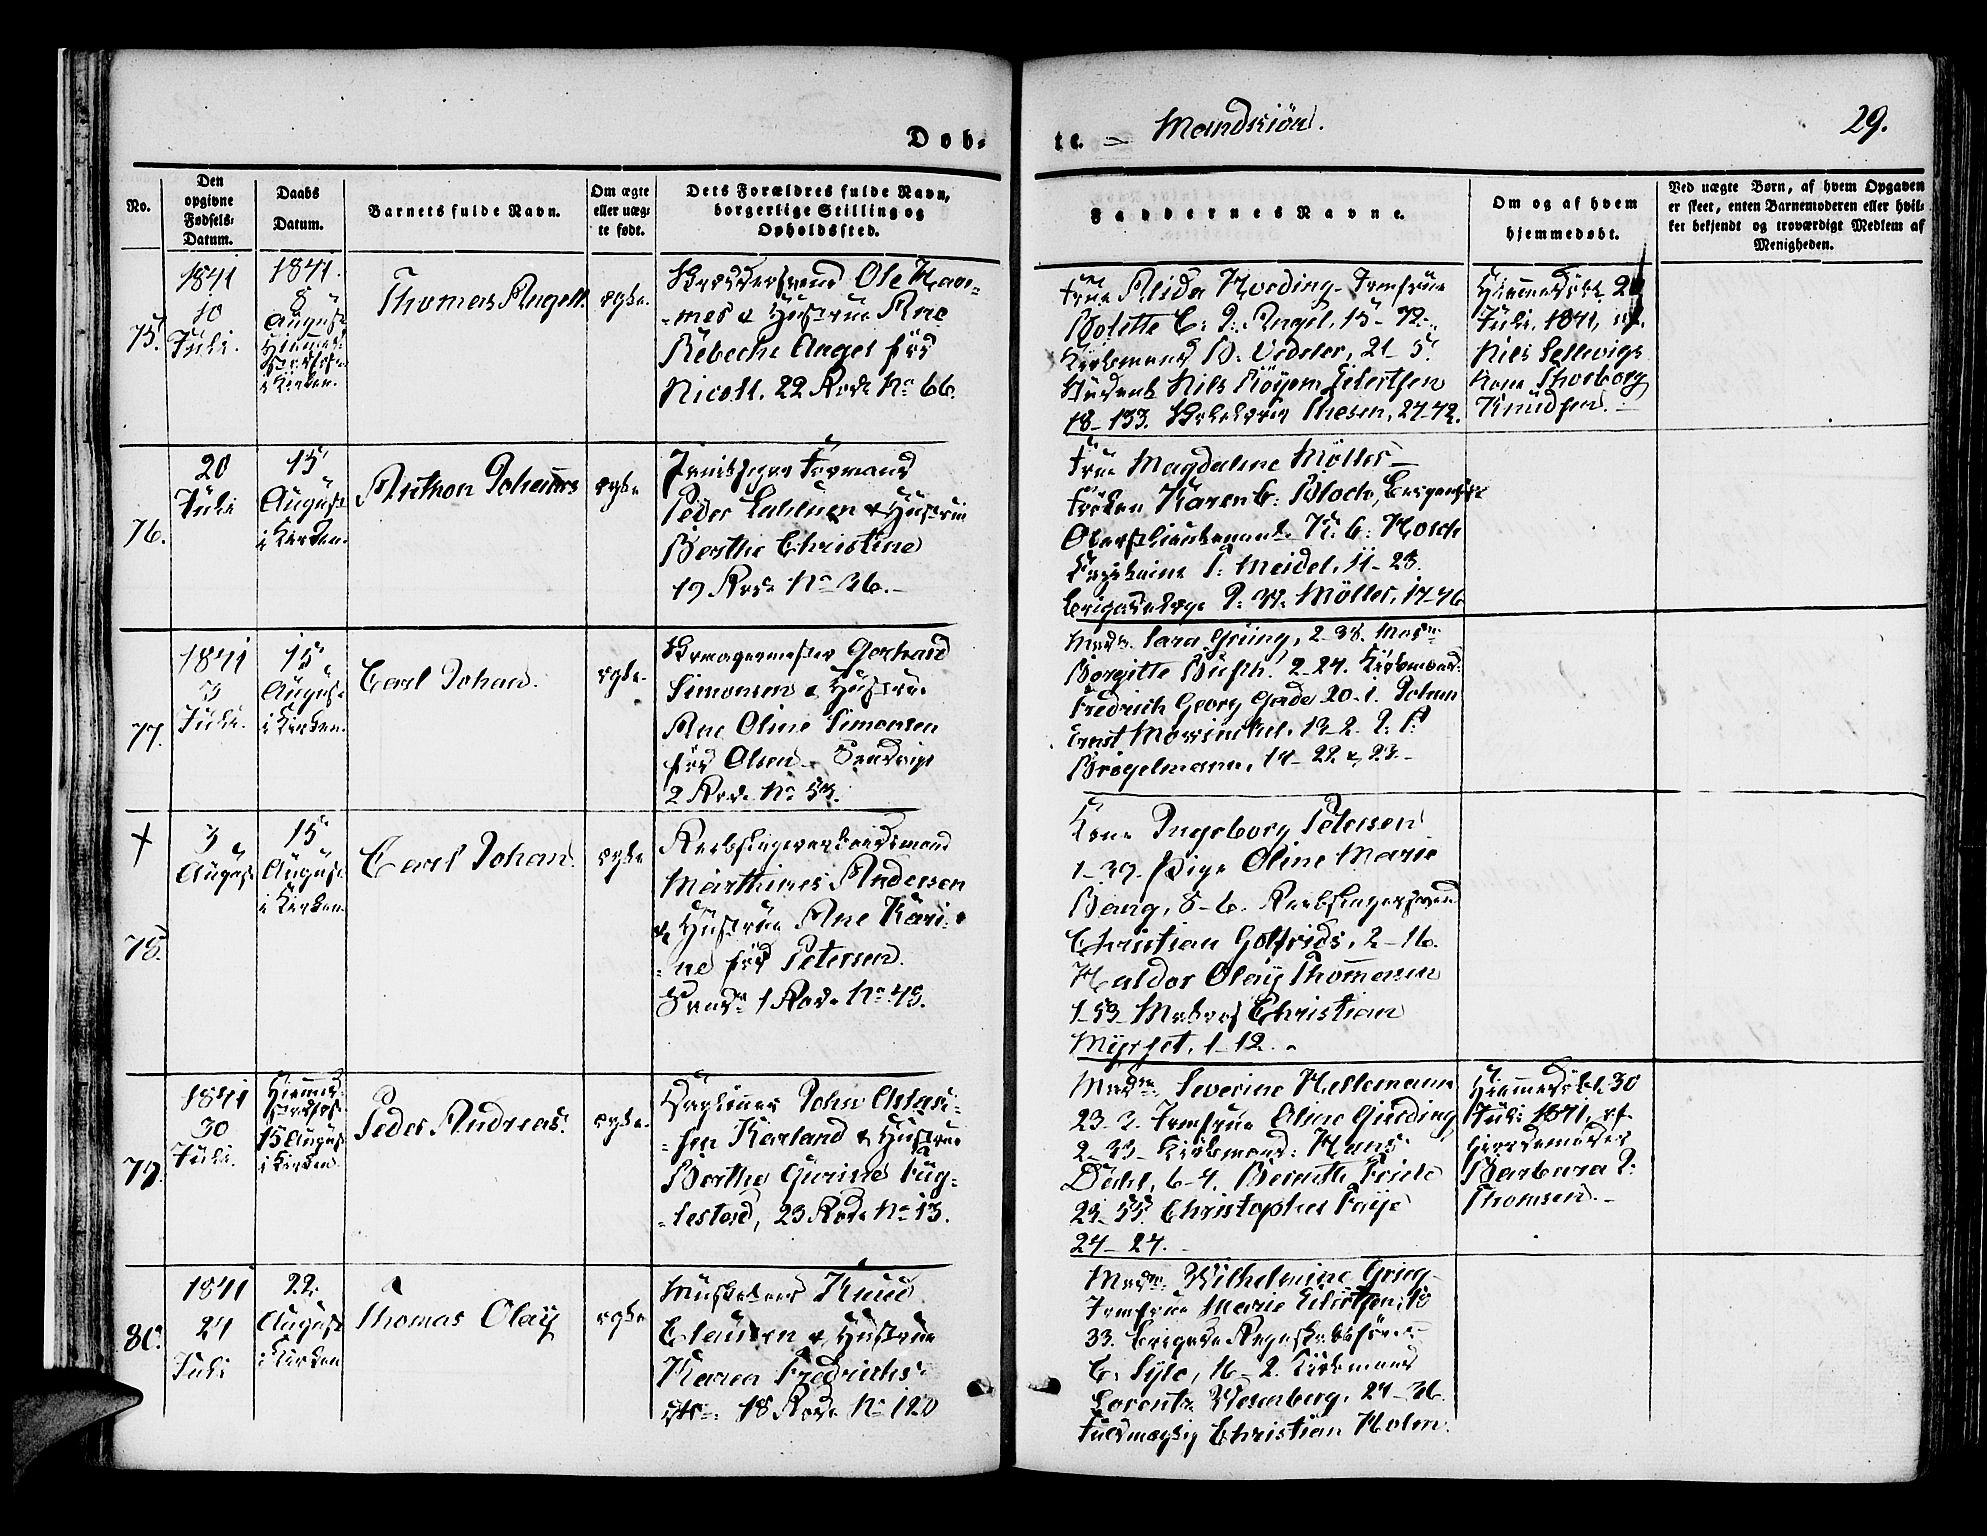 Døb-
te. – Mandkiøn.
29.
No.
Den
opgivne
Fødsels-
Datum.
Daabs
Datum.
Barnets fulde Navn.
Om ægte
eller uæg-
te født.
Dets Forældres fulde Navn,
borgerlige Stilling og
Opholdssted.
Faddernes Navne.
Om og af hvem
hjemmedøbt.
Ved uægte Børn, af hvem Opgaven
er skeet, enten Barnemoderen eller hvil-
ket bekjendt og troværdigt Medlem af
Menigheden.
75.
1841
10
Juli.
1841.
8
August
i Kirken.
Thomas Angell.
ægte.
Ole Han-
-nes & Hustrue Ane
Rebecke Angel fød
Nicoll. 22 Rode No 66.
Frue Alida Hvoding - Jomfrue
Bolette C: D: Angel, 15-72.
Kiøbmand B. Vedeler, 21-5.
Student Nils Røyem Eilertsen
18-133. Thesen, 24-42.
Hiemmedøbt 21
Juli 1841, af
Nils Sellevigs
Kone Thorborg
Knudsen. –
76.
20
Juli
15
August
i Kirken.
Anthon Johannes
ægte
Formand
Peder & Hustrue
Berthe Christine
19 Rode No 36. –
Frue Magdalene Møller –
Frøken Karen C: Bloch,
Oberstlieutenant N: C: Holck
Capitaine P: Meidel, 11-23.
Brigadelæge D: W: Møller, 17-46
77.
1841
3
Juli.
15
August
i Kirken.
Carl Johan.
ægte.
Gerhard
Simonsen & Hustrue
Ane Oline Simonsen
fød Olsen – Sandvigs
2 Rode No 53.
Mad. Sara Grüng, 2-38. Mad.
Borgitte Busch. 2-24. Kiøbmand
Fredrich Georg Gade 20-1. Johan
Ernst Mowinckel. 13-2. D: P:
Brøgelmann, 14-22 & 23. –
+
78.
3
August
15
August
i Kirken.
Carl Johan
ægte
Marthinus Andersen
& Hustrue Ane Kari-
-ne fød Petersen.
1 Rode No 45.
Kone Ingeborg Petersen
1-39. Pige Oline Marie
Bang, 8-6.
Christian Gotfrids, 2-16.
Haldor Olay Thommesen
1-53. Christian
Myrset, 1-12. –
79.
1841
30
Juli.
15 August
i Kirken.
Peder Andreas.
ægte.
John
Karland & Hustrue
Berthe Gurine Fug-
-lestad, 23 Rode No 13.
Madm. Severine Heltemann
23-3. Jomfrue Oline Gieding
2-33. Kiøbmand: Hans
Dahl, 6-4. Berenth Friele
23-55. Christopher Faye
24-24. –
Hiemmedøbt 30
Juli 1841, af
Giordemoder
Barbara D:
Thomsen. –
80.
1841
24
Juli
22
August
i Kirken
Thomas Olay
ægte
Musketeer Knud
Clausen & Hustrue
Karen Fredrichs-
18 Rode No 120
Madm. Wilhelmine Grieg –
Jomfrue Marie Eilertsen, 18
33. Brigade Regnskabsfører
C: Sylo, 16-2. Kiøbmand
Lorentz Wesenberg, 24-36.
Fuldmægtig Christian Holm.